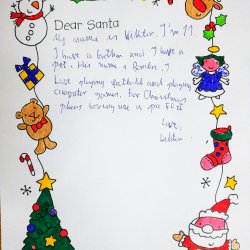 Dear Santa
My name is Viktor. I'm 11.
I have a brother and I have a
pet. His name is
playing football and playing
computer games. For Christmas
please bring me a
Love,
Viktor